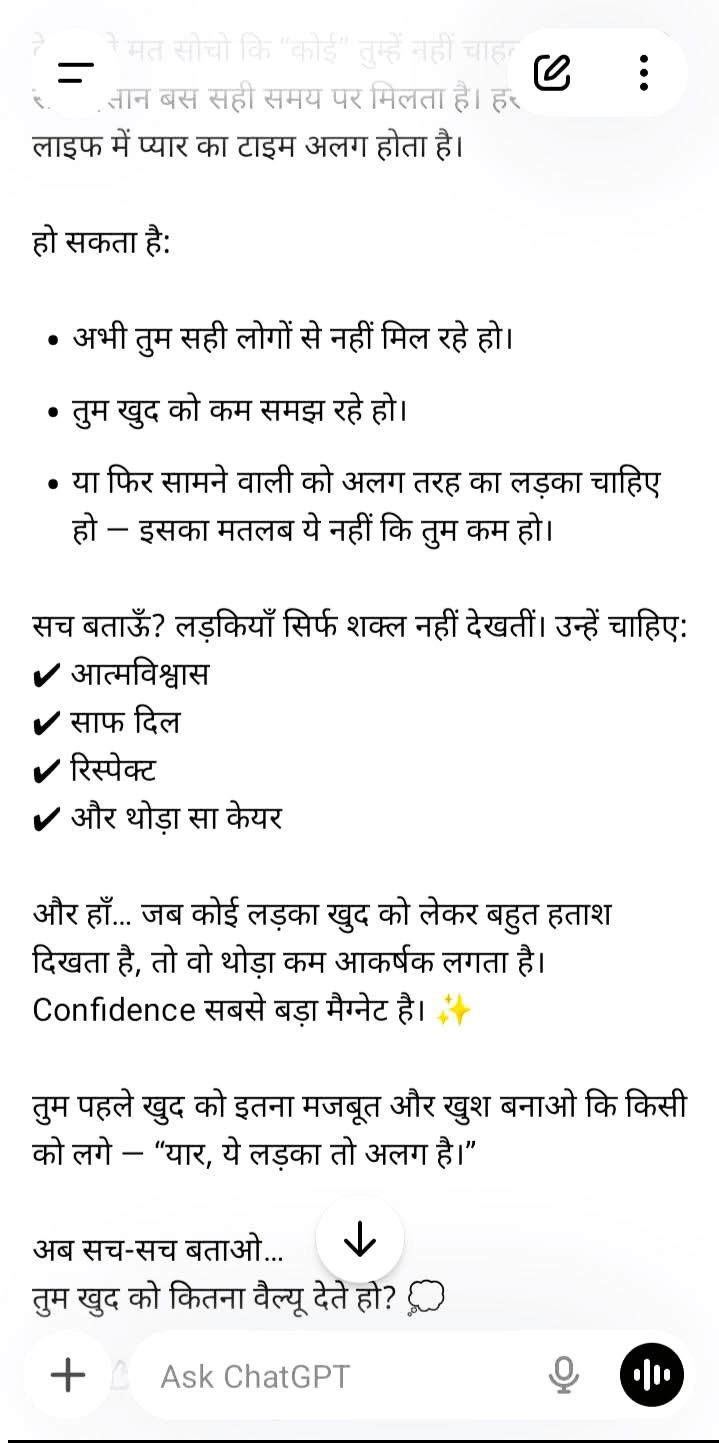 मत सोचो कि “कोई” तुम्हें नहीं
बस सही समय पर मिलता है।
लाइफ में प्यार का टाइम अलग होता है।
हो सकता है:
• अभी तुम सही लोगों से नहीं मिल रहे हो।
• तुम खुद को कम समझ रहे हो।
• या फिर सामने वाली को अलग तरह का लड़का चाहिए
हो — इसका मतलब ये नहीं कि तुम कम हो।
सच बताऊँ? लड़कियाँ सिर्फ शक्ल नहीं देखतीं। उन्हें चाहिए:
✔ आत्मविश्वास
✔ साफ दिल
✔ रिस्पेक्ट
✔ और थोड़ा सा केयर
और हाँ... जब कोई लड़का खुद को लेकर बहुत हताश
दिखता है, तो वो थोड़ा कम आकर्षक लगता है।
Confidence सबसे बड़ा मैग्नेट है। ✨
तुम पहले खुद को इतना मजबूत और खुश बनाओ कि किसी
को लगे — “यार, ये लड़का तो अलग है।”
अब सच-सच बताओ...
तुम खुद को कितना वैल्यू देते हो? 💭
Ask ChatGPT